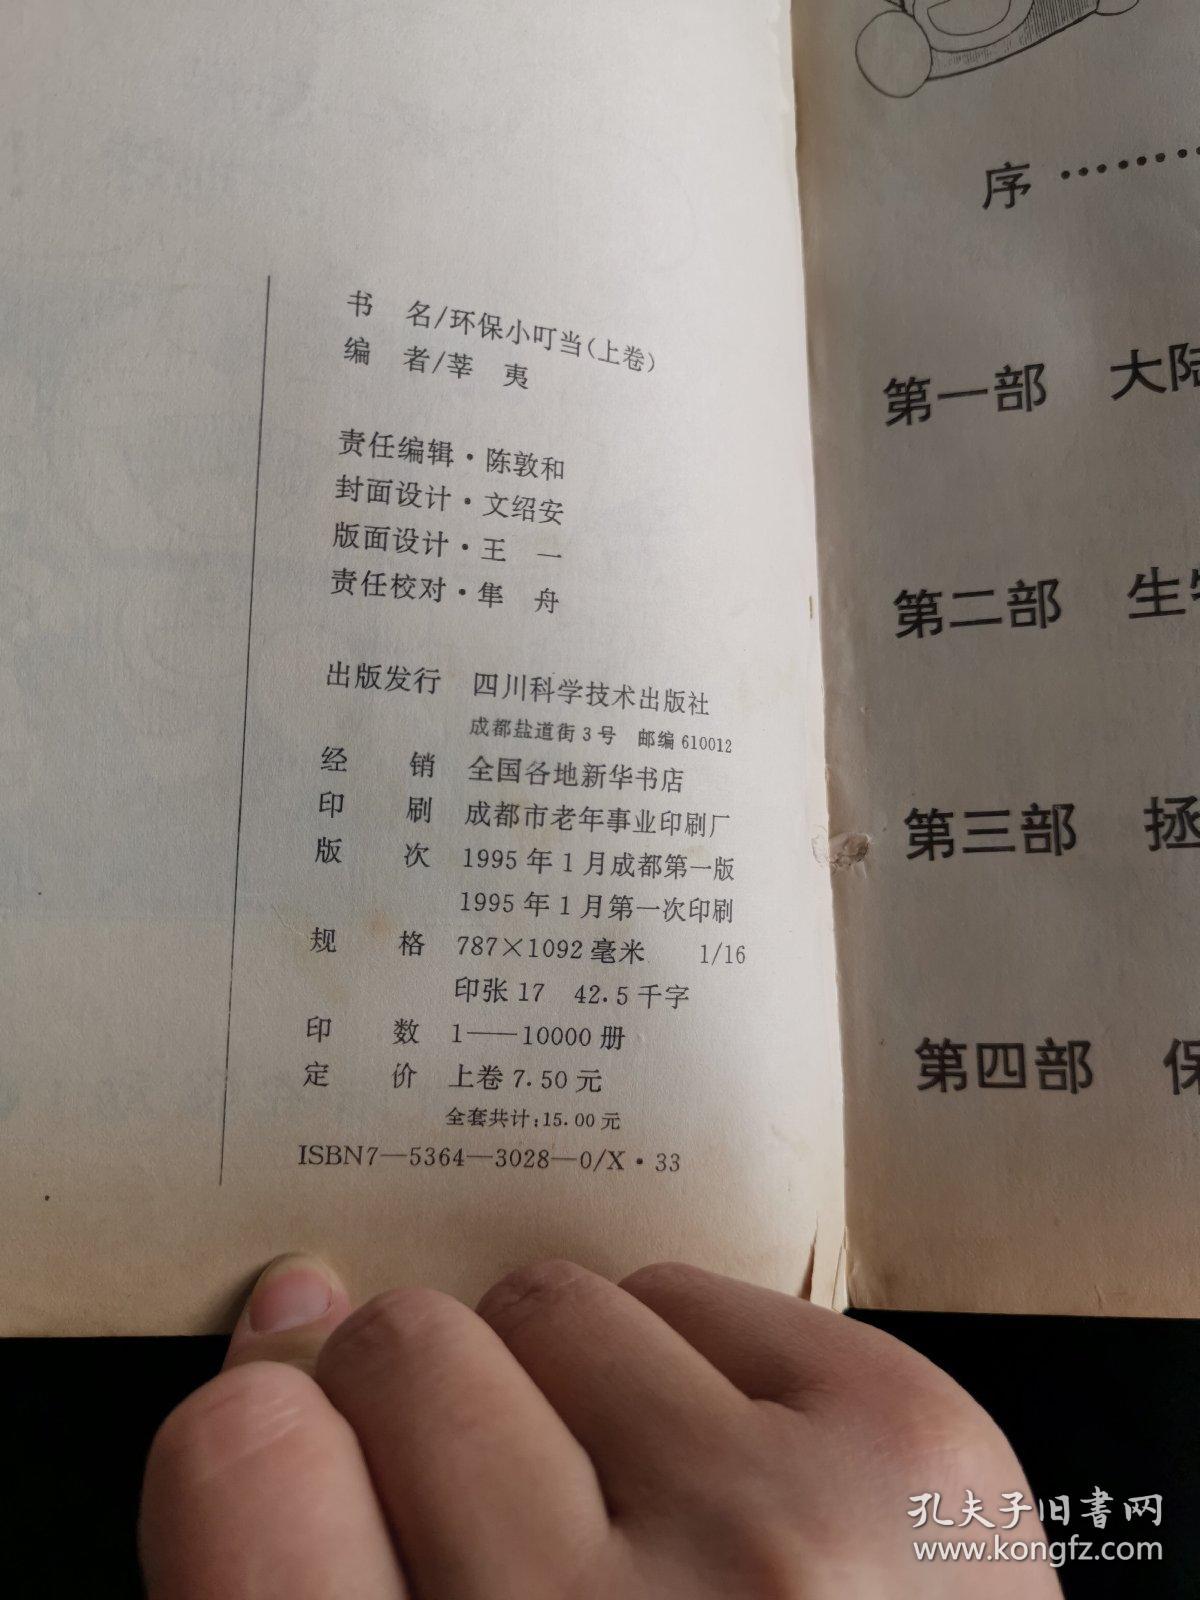 书　名/环保小叮当(上卷)
编　者/莘　夷
责任编辑·陈敦和
封面设计·文绍安
版面设计·王　一
责任校对·隼　舟
出版发行　四川科学技术出版社
成都盐道街3号　邮编610012
经　销　全国各地新华书店
印　刷　成都市老年事业印刷厂
版　次　1995年1月成都第一版
1995年1月第一次印刷
规　格　787×1092毫米　1/16
印张17　42.5千字
印　数　1——10000册
定　价　上卷7.50元
全套共计:15.00元
ISBN7—5364—3028—0/X·33
序………
第一部　大陆
第二部　生
第三部　拯
第四部　保
孔夫子旧书网
www.kongfz.com